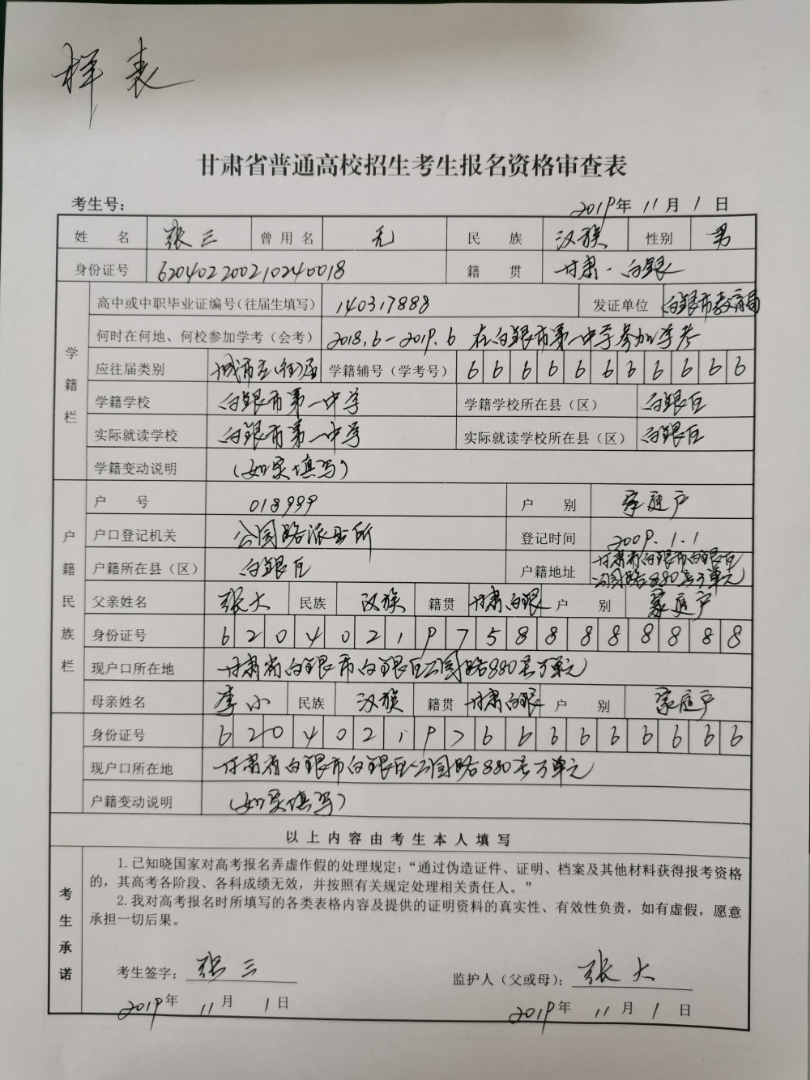 样表
甘肃省普通高校招生考生报名资格审查表
考生号: 2019年 11月 1日
姓名 张三 曾用名 无 民族 汉族 性别 男
身份证号 620402200210240018 籍贯 甘肃·白银
学籍栏
高中或中职毕业证编号(往届生填写) 140317888 发证单位 白银市教育局
何时在何地、何校参加学考(会考) 2018.6-2019.6 在白银市第一中学参加学考
应往届类别 城市应(往)届 学籍辅号(学考号) 6 6 6 6 6 6 6 6 6 6 6 6
学籍学校 白银市第一中学 学籍学校所在县(区) 白银区
实际就读学校 白银市第一中学 实际就读学校所在县(区) 白银区
学籍变动说明 (如实填写)
户籍民族栏
户号 018999 户别 家庭户
户口登记机关 公园路派出所 登记时间 2009.1.1
户籍所在县(区) 白银区 户籍地址 甘肃省白银市白银区
公园路880号万单元
父亲姓名 张大 民族 汉族 籍贯 甘肃白银 户别 家庭户
身份证号 6 2 0 4 0 2 1 9 7 5 8 8 8 8 8 8 8 8
现户口所在地 甘肃省白银市白银区公园路880号万单元
母亲姓名 李小 民族 汉族 籍贯 甘肃白银 户别 家庭户
身份证号 6 2 0 4 0 2 1 9 7 6 6 6 6 6 6 6 6 6
现户口所在地 甘肃省白银市白银区公园路880号万单元
户籍变动说明 (如实填写)
以上内容由考生本人填写
考生承诺
1.已知晓国家对高考报名弄虚作假的处理规定:“通过伪造证件、证明、档案及其他材料获得报考资格
的,其高考各阶段、各科成绩无效,并按照有关规定处理相关责任人。”
2.我对高考报名时所填写的各类表格内容及提供的证明资料的真实性、有效性负责,如有虚假,愿意
承担一切后果。
考生签字: 张三 监护人(父或母): 张大
2019年 11月 1日 2019年 11月 1日